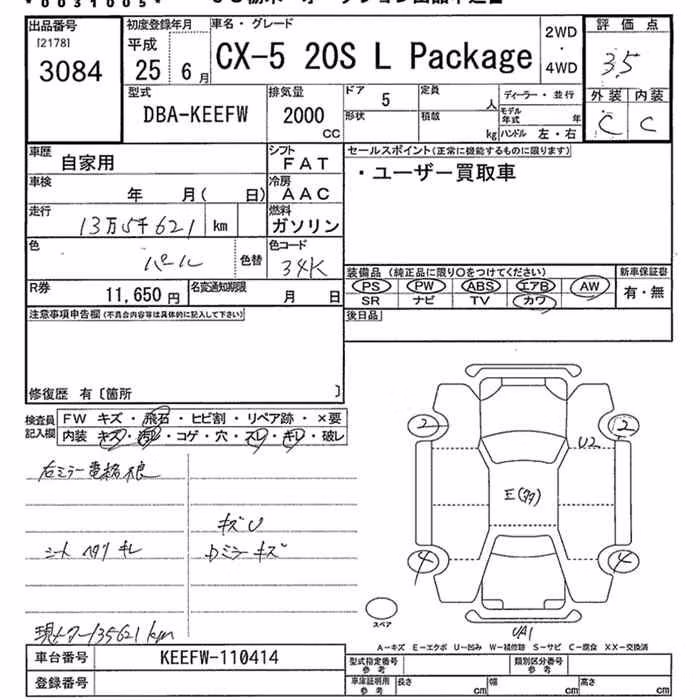 *0031005*
出品番号 初度登録年月 車名・グレード 2WD ・ 4WD 評価点
[2178] 3084 平成 25 6月 CX-5 20S L Package 3.5
外装 内装
C C
型式 DBA-KEEFW 排気量 2000 CC ドア 5 定員 人 ディーラー・並行
形状 積載 kg モデル年式 年 ハンドル 左・右
車歴 自家用 シフト FAT セールスポイント(正常に機能するものに限ります)
・ユーザー買取車
車検 年 月( 日) 冷房 AAC
走行 13万5千621 km 燃料 ガソリン
色 パール 色替 色コード 34K
装備品(純正品に限り○をつけてください) 新車保証書
PS PW ABS エアB AW 有・無
SR ナビ TV カワ
R券 11,650円 名変通知期限 月 日
後日品
注意事項申告欄(不具合内容等は具体的に記入して下さい)
修復歴 有〔箇所 〕
検査員記入欄 FW キズ・飛石・ヒビ割・リペア跡・×要
内装 キズ・汚レ・コゲ・穴・スレ・キレ・破レ
右ミラー電格不良
キズU
シート ヘタリ キレ
ミラーキズ
現メーター135621km
2 2
U2
E(77)
4 4
スペア
UA1
A-キズ E-エクボ U-凹み W-補修跡 S-サビ C-腐食 XX-交換済
車台番号 KEEFW-110414 型式指定番号 参考 類別区分番号 参考
登録番号 車庫証明用 参考 長さ cm 幅 cm 高さ cm